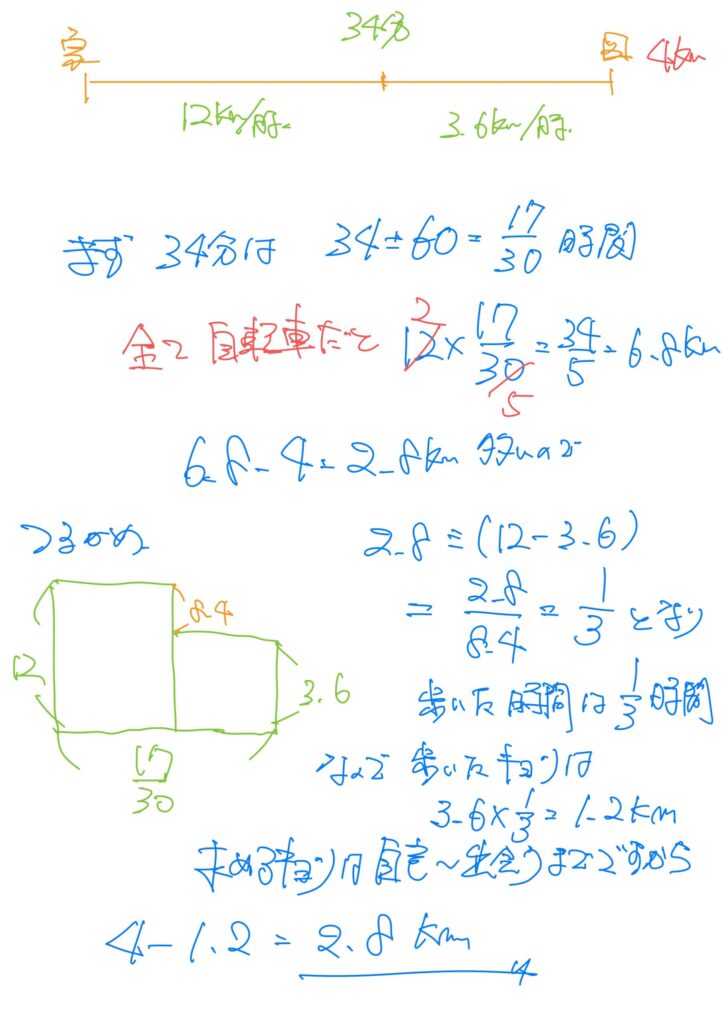 34分
家 図 4km
12km/時 3.6km/時
まず 34分は 34÷60=17/30 時間
全て自転車だと 12×17/30=34/5=6.8km
2
5
6.8-4=2.8km 多いので
つるかめ
2.8÷(12-3.6)
=2.8/8.4=1/3 となり
歩いた時間は1/3時間
なので 歩いたキョリは
3.6×1/3=1.2km
8.4
12
3.6
17/30
求めるキョリは自宅〜出会うまでですから
4-1.2=2.8km